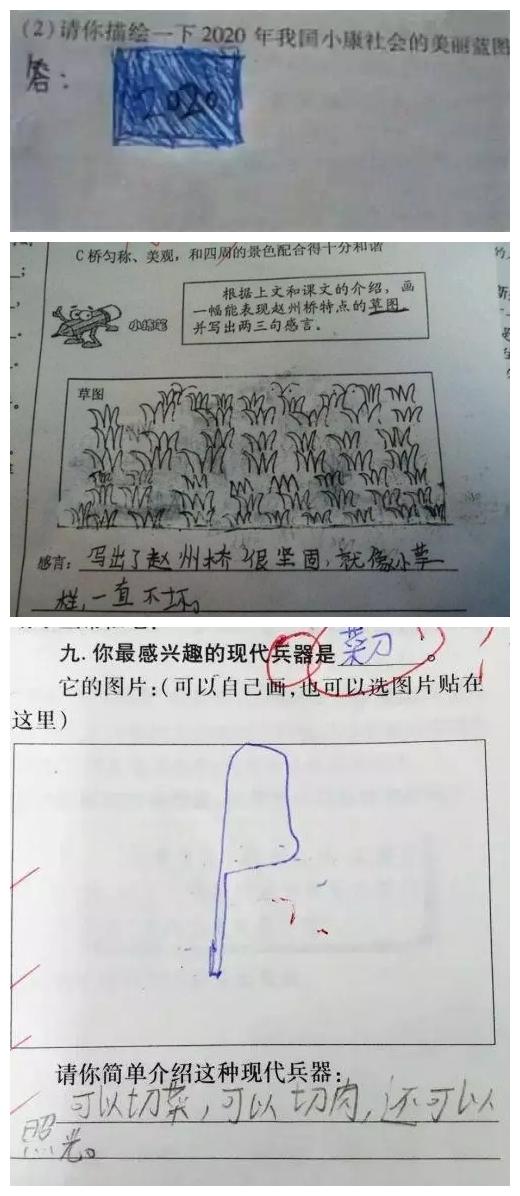 (2)请你描绘一下 2020 年我国小康社会的美丽蓝图
答：
2020
C 桥匀称、美观，和四周的景色配合得十分和谐
根据上文和课文的介绍，画
一幅能表现赵州桥特点的草图，
并写出两三句感言。
小练笔
草图
感言：写出了赵州桥很坚固，就像小草一
样，一直不坏。
九. 你最感兴趣的现代兵器是菜刀。
它的图片：（可以自己画，也可以选图片贴在
这里）
请你简单介绍这种现代兵器：
可以切菜，可以切肉，还可以
照光。